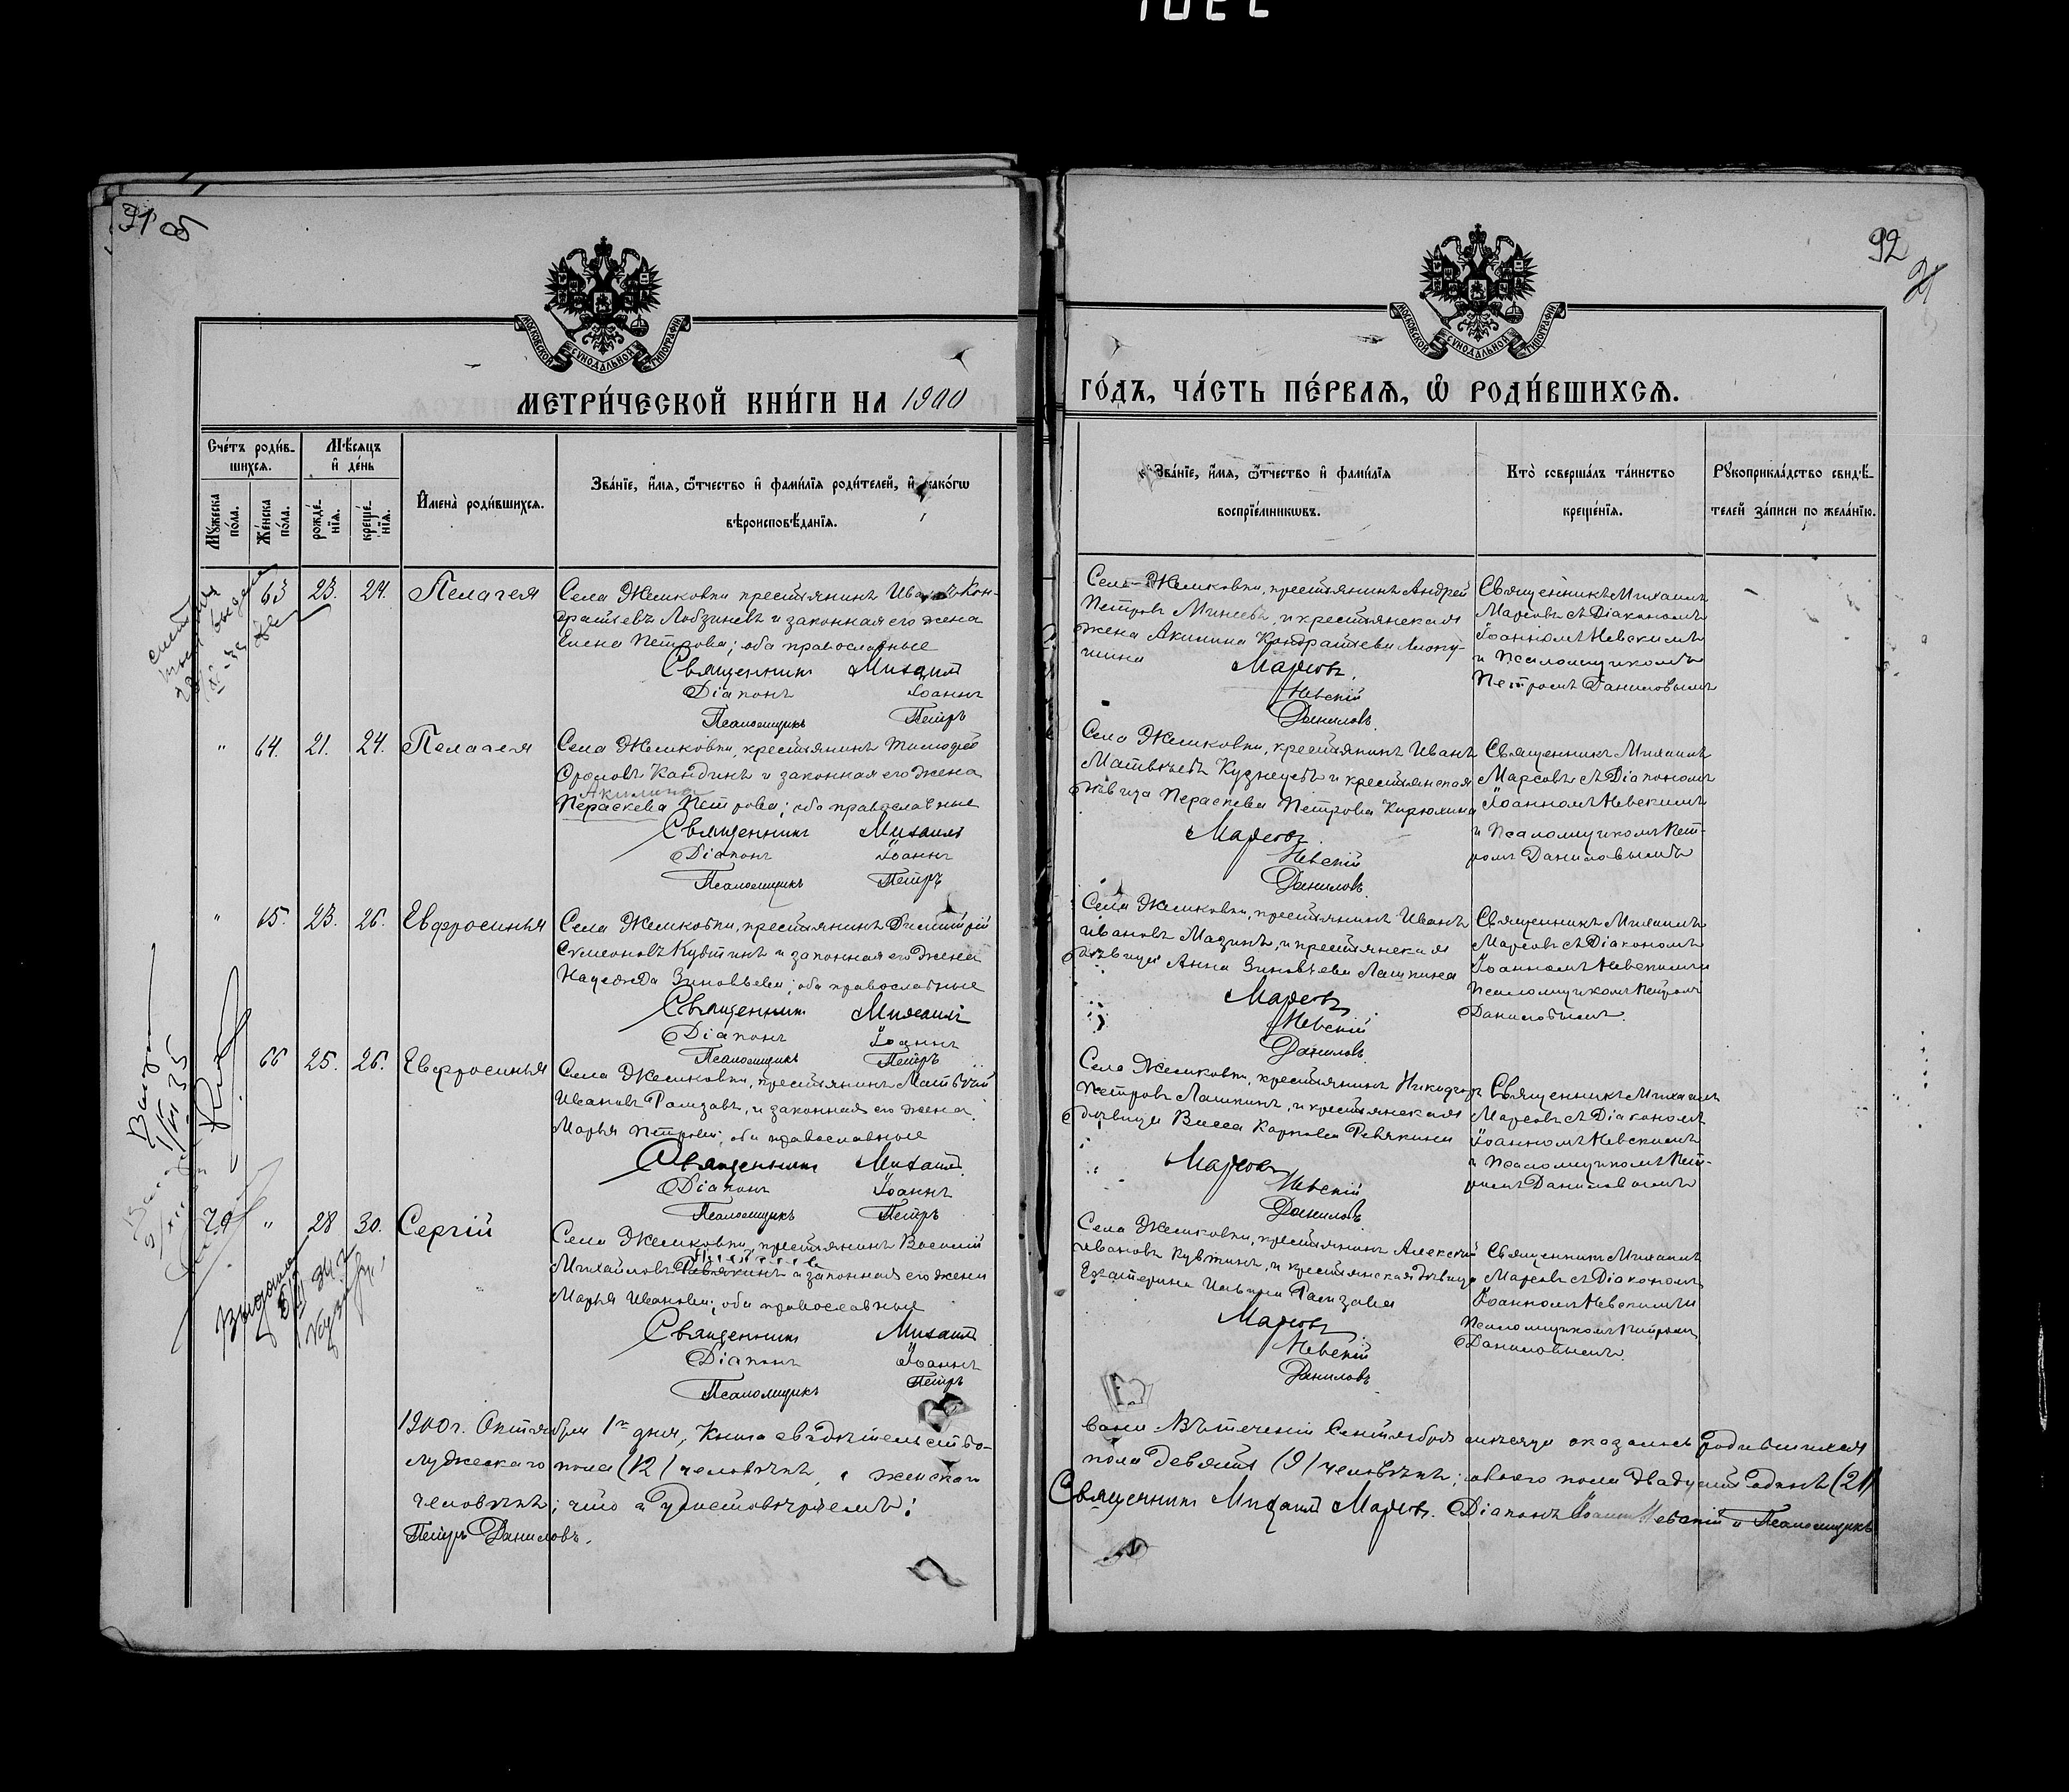 91 об
92
21
МОСКОВСКОЙ СѴНОДАЛЬНОЙ ТИПОГРАФІИ
МОСКОВСКОЙ СѴНОДАЛЬНОЙ ТИПОГРАФІИ
МЕТРИ́ЧЕСКОЙ КНИ́ГИ НА 1900
ГО́ДЪ, ЧА́СТЬ ПЕ́РВАѦ, Ѽ РОДИ́ВШИХСѦ.
Сче́тъ роди́в-
шихся.
М́ѣсяцъ
и҆ де́нь
Мꙋ́жеска
по́ла.
Же́нска
по́ла.
рожде́-
нїѧ.
креще́-
нїѧ.
И҆мена̀ роди́вшихся.
Зва́нїе, и҆́мѧ, ѻ҆́тчество и҆ фами́лїѧ роди́телей, и҆ како́гѡ
вѣроисповѣ́данїѧ.
Зва́нїе, и҆́мѧ, ѻ҆́тчество и҆ фами́лїѧ
воспрїе́мникѡвъ.
Кто̀ соверша́лъ та́инство
креще́нїѧ.
Рꙋкоприкла́дство свидѣ́-
телей за́писи по жела́нїю.
63 23. 24. Пелагея
Села Желиковки крестьянинъ Иванъ Кон-
дратьевъ Лобзиневъ и законная его жена
Елена Петрова; оба православные
Священникъ Михаилъ
Діаконъ Іоаннъ
Псаломщикъ Петръ
Села Желиковки, крестьянинъ Андрей
Петровъ Минеевъ, и крестьянская
жена Акилина Кондратьева
Марсовъ
Невскій
Даниловъ
Священникъ Михаилъ
Марсовъ съ Діакономъ
Іоанномъ Невскимъ
и Псаломщикомъ
Петромъ Даниловымъ
" 64. 21. 24. Пелагея
Села Желиковки, крестьянинъ Тимофей
Кандинъ и законная его жена
Акилина
Параскева Петрова; оба православные
Священникъ Михаилъ
Діаконъ Іоаннъ
Псаломщикъ Петръ
Села Желиковки, крестьянинъ Иванъ
Матвѣевъ Кузнецовъ и крестьянская
дѣвица Параскева Петрова Кирюхина
Марсовъ
Невскій
Даниловъ
Священникъ Михаилъ
Марсовъ съ Діакономъ
Іоанномъ Невскимъ
и Псаломщикомъ Пет-
ромъ Даниловымъ
" 65. 23. 26. Евфросинья
Села Желиковки, крестьянинъ Димитрій
Сѵмеоновъ Кувтинъ и законная его жена
Надежда Зиновьева; оба православные
Священникъ Михаилъ
Діаконъ Іоаннъ
Псаломщикъ Петръ
Села Желиковки, крестьянинъ Иванъ
Ивановъ Мазинъ, и крестьянская
дѣвица Анна Зиновьева Лашкина
Марсовъ
Невскій
Даниловъ
Священникъ Михаилъ
Марсовъ съ Діакономъ
Іоанномъ Невскимъ и
Псаломщикомъ Петромъ
Даниловымъ.
66 25. 26. Евфросинья
Села Желиковки, крестьянинъ Матвѣй
Ивановъ, и законная его жена
Марья Петрова; оба православные
Священникъ Михаилъ
Діаконъ Іоаннъ
Псаломщикъ Петръ
Села Желиковки, крестьянинъ
Петровъ Лашкинъ, и крестьянская
дѣвица Васса Карпова Ревякина
Марсовъ
Невскій
Даниловъ
Священникъ Михаилъ
Марсовъ съ Діакономъ
Іоанномъ Невскимъ
и Псаломщикомъ Пет-
ромъ Даниловымъ
" 28 30. Сергій
Села Желиковки, крестьянинъ Василій
Михайловъ Ревякинъ и законная его жена
Марья Иванова; оба православные
Священникъ Михаилъ
Діаконъ Іоаннъ
Псаломщикъ Петръ
Села Желиковки, крестьянинъ Алексей
Ивановъ Кувтинъ, и крестьянская дѣвица
Екатерина Ильина
Марсовъ
Невскій
Даниловъ
Священникъ Михаилъ
Марсовъ съ Діакономъ
Іоанномъ Невскимъ и
Псаломщикомъ Петромъ
Даниловымъ.
1900 г. Октября 1го дня, Книга свѣдѣтельство-
вана Въ теченіи Сентября мѣсяца оказалось родившихся
мужескаго пола (12) человѣкъ, а женскаго
пола девять (9) человѣкъ; обоего пола двадцать одинъ (21)
человѣкъ; что и удостовѣряемъ:
Священникъ Михаилъ Марсовъ. Діаконъ Іоаннъ Невскій и Псаломщикъ
Петръ Даниловъ.